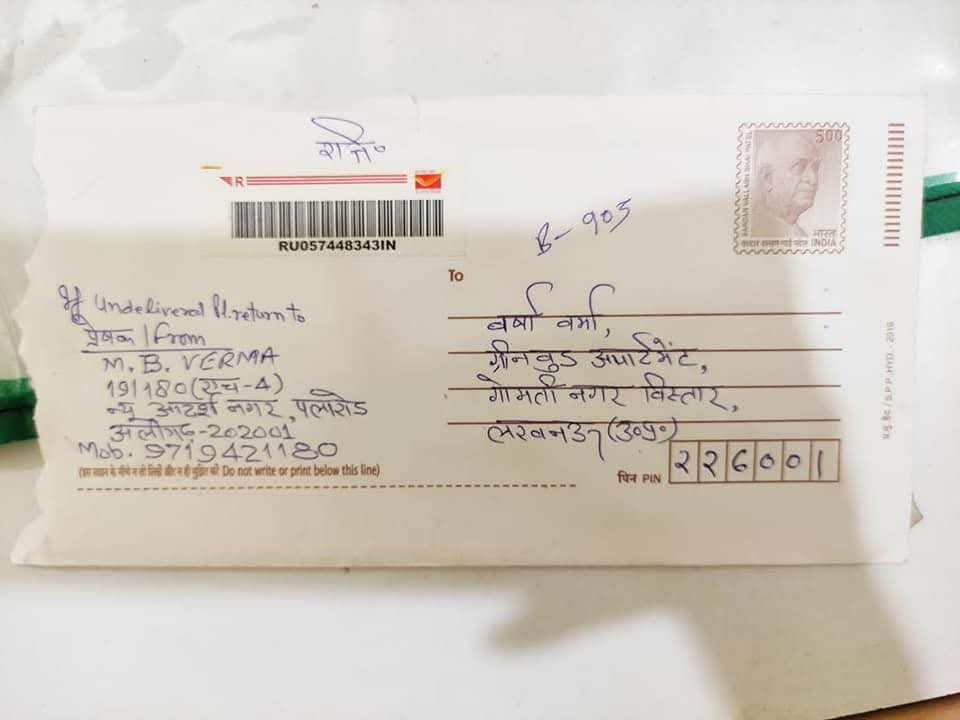 रजि०
R
RU057448343IN
B-903
500
SARDAR VALLABH BHAI PATEL
सरदार वल्लभ भाई पटेल
भारत
INDIA
To
वर्षा वर्मा,
ग्रीनवुड अपार्टमेंट,
गोमती नगर विस्तार,
लखनऊ (उ०प्र०)
पिन PIN 226001
If undelivered Pl. return to
प्रेषक / From
M. B. VERMA
19/180 (एच-4)
न्यू आदर्श नगर, पलारोड
अलीगढ़-202001
Mob. 9719421180
(इस लाइन के नीचे न तो लिखें और न ही मुद्रित करें Do not write or print below this line)
प्र.मु.हैद / S.P.P.HYD.-2016